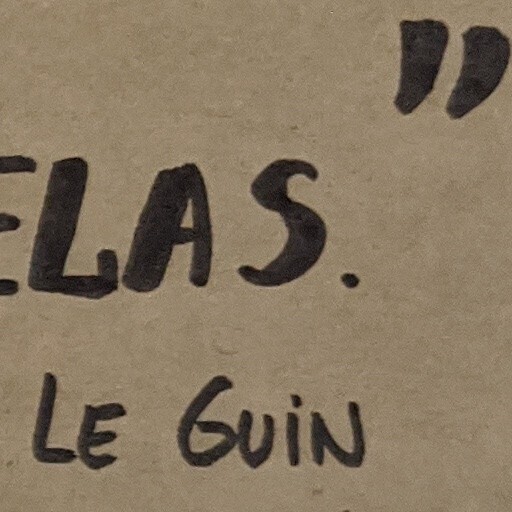 ”
ELAS.
LE GUIN